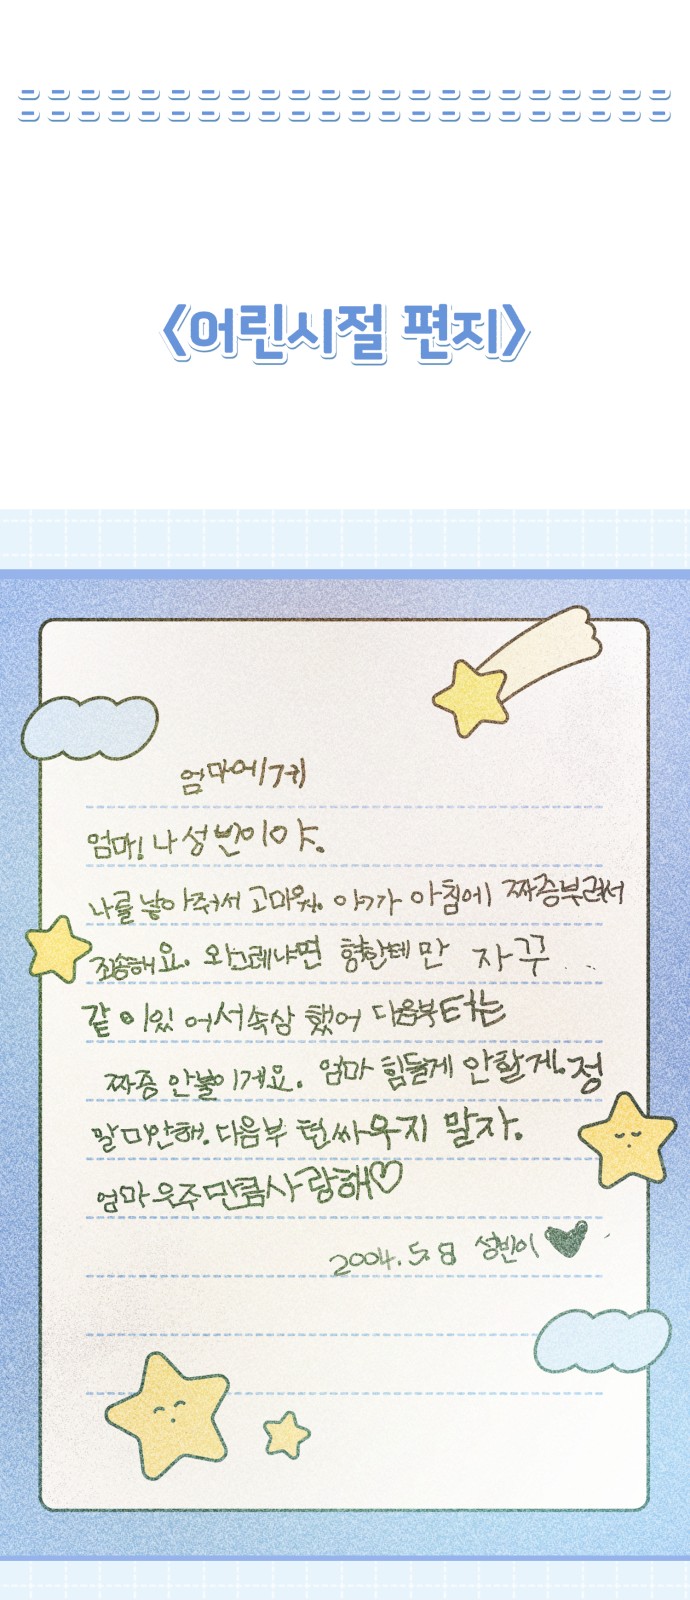 <어린시절 편지>
엄마에게
엄마! 나 성빈이야.
나를 낳아줘서 고마워. 아까 아침에 짜증부려서
죄송해요. 왜그레냐면 형한테만 자꾸
같이있어서속상했어 다음부터는
짜증 안불이게요. 엄마 힘들게 안할게. 정
말미안해. 다음부턴싸우지 말자.
엄마 우주만큼사랑해♡
2004. 5.8 성빈이 ♥